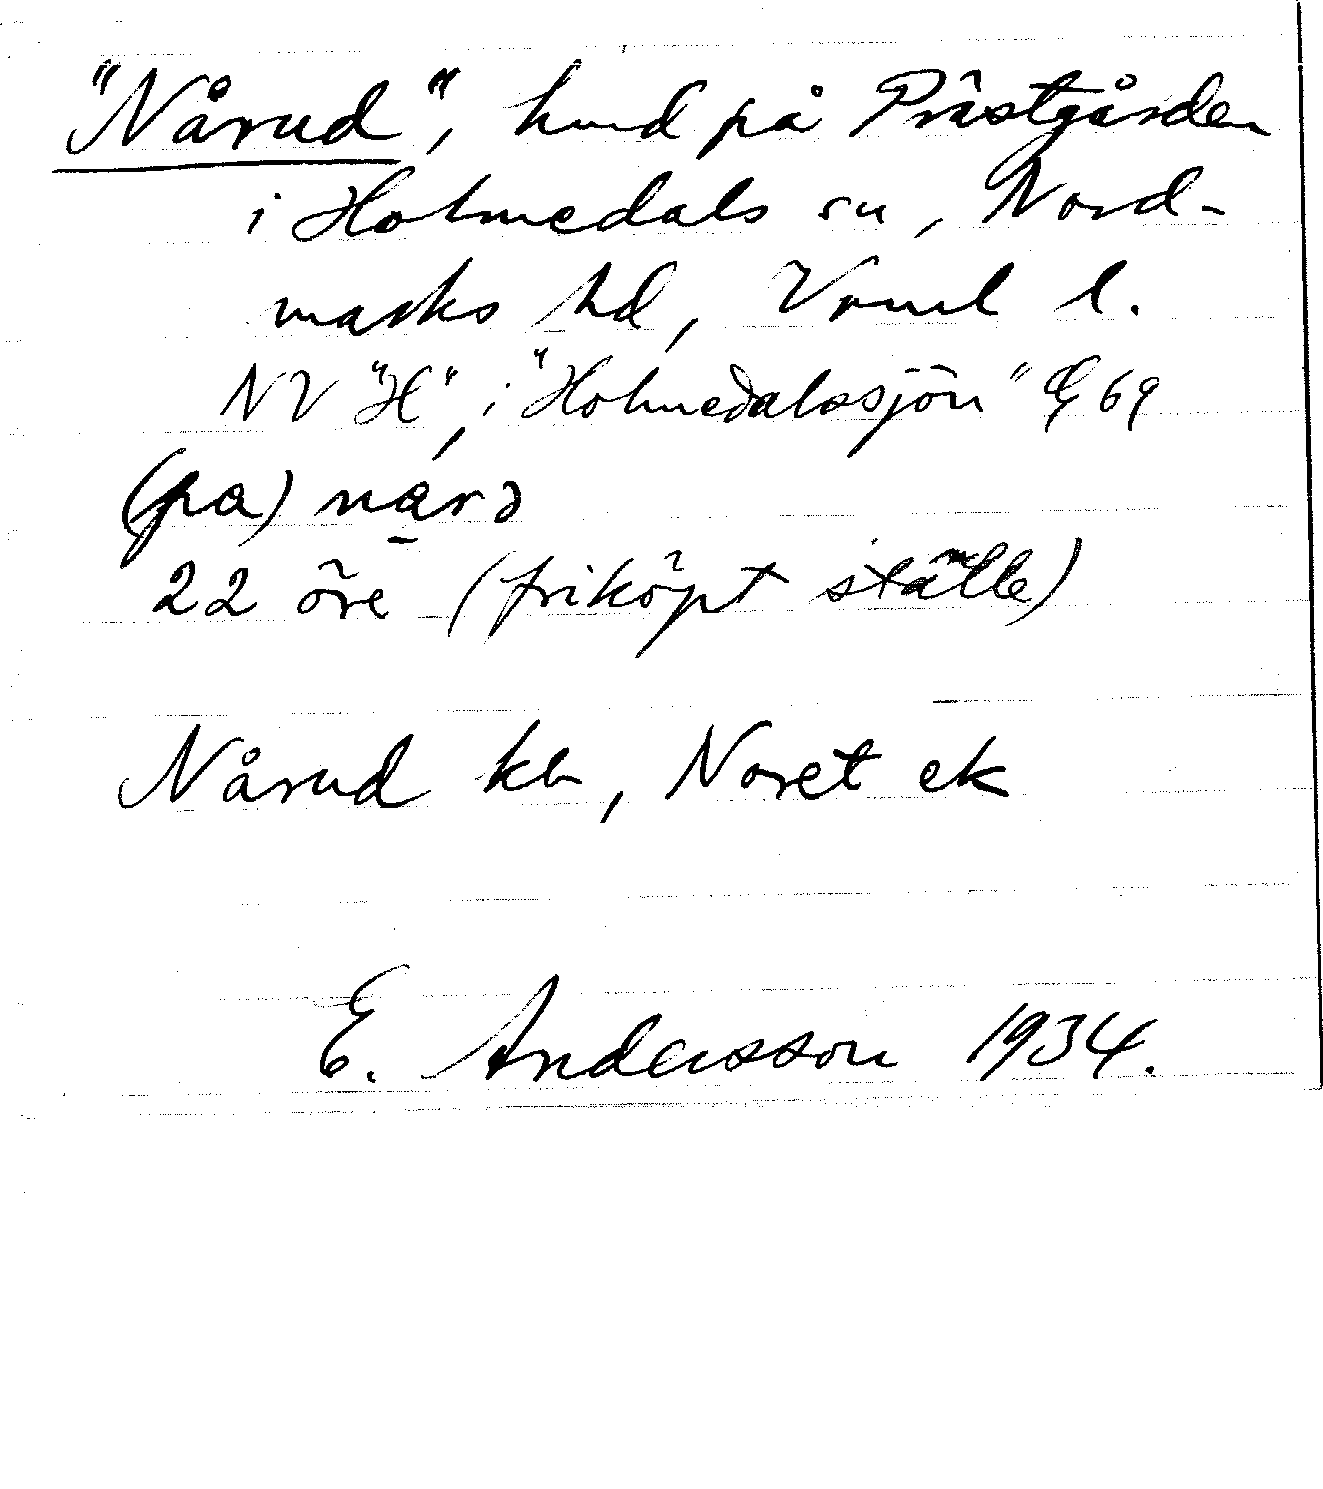 "Nårud", hmd på Prästgården
i Holmedals sn, Nord-
marks hd, Vrml l.
NV "H", i "Holmedalssjön" G 69
(pa) narə
22 öre (friköpt ställe)
Nårud kb, Noret ek
E. Andersson 1934.